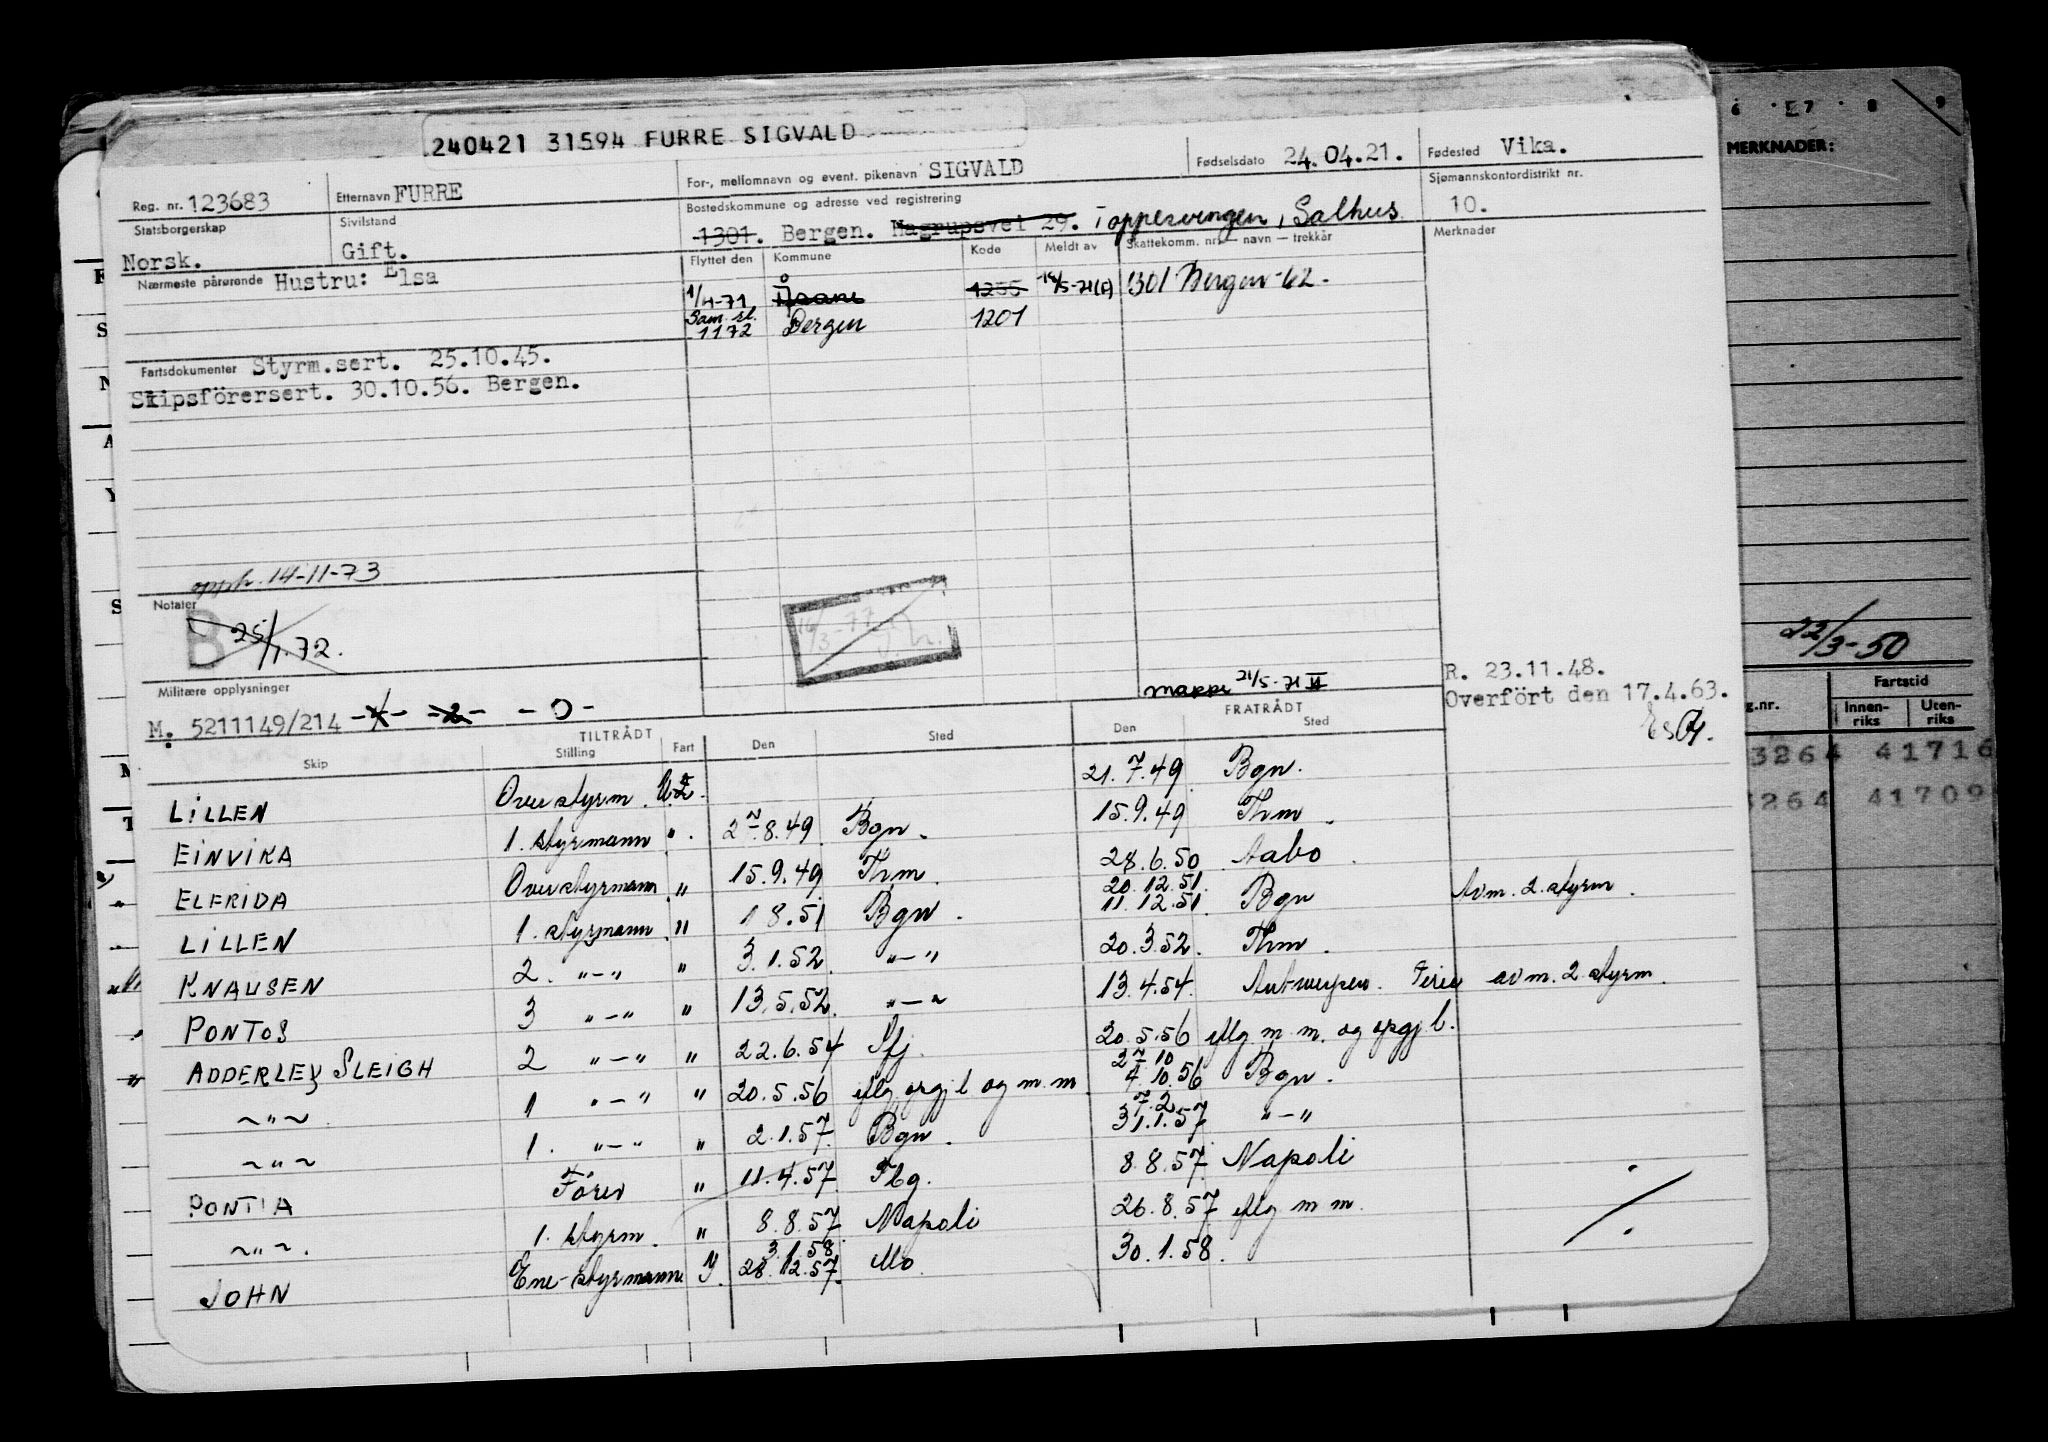 240421 31594 FURRE SIGVALD
Reg. nr. 123683 Etternavn FURRE For-, mellomnavn og event. pikenavn SIGVALD Fødselsdato 24.04.21. Fødested Vika.
Statsborgerskap Norsk. Sivilstand Gift. Bostedskommune og adresse ved registrering 1301. Bergen. Hagrupsvei 29. Toppesvingen, Salhus Sjømannskontordistrikt nr. 10.
Nærmeste pårørende Hustru: Elsa
Flyttet den Kommune Kode Meldt av Skattekomm. nr. — navn — trekkår Merknader
1/4-71 1255 14/5-71(F) 1301 Bergen-62.
Sam. sl.
1172 Bergen 1201
Fartsdokumenter Styrm.sert. 25.10.45.
Skipsförersert. 30.10.56. Bergen.
opph. 14-11-73
Notater
B 25/1.72.
Militære opplysninger
M. 5211149/214 -1- -2- -0-
mappe 21/5-71 II
R. 23.11.48.
Overført den 17.4.63.
TILTRÅDT FRATRÅDT
Skip Stilling Fart Den Sted Den Sted
LILLEN Overstyrm. U 21.7.49 Bgn.
EINVIKA 1. styrmann " 2/8.49 Bgn. 15.9.49 Thm.
ELFRIDA Overstyrmann " 15.9.49 Thm. 28.6.50 Aabo.
LILLEN 1. styrmann " 1 8.51 Bgn. 20.12.51. 11.12.51. Bgn Avm. 2. styrm.
KNAUSEN 2. "-" " 3.1.52. "-" 20.3.52. Thm.
PONTOS 3 "-" " 13.5.52. "-" 13.4.54. Antwerpen. Ferie avm. 2. styrm.
ADDERLEY SLEIGH 2 "-" " 22.6.54 Sfj. 20.5.56 iflg m.m. og opgj b.
"-" 1 "-" " 20.5.56 iflg opgj b og m.m. 2/10 4.10.56 Bgn.
"-" 1. "-" " 2.1.57. Bgn. 7.2 31.1.57 "-"
PONTIA Fører " 11.4.57. Fbg. 8.8.57. Napoli
"-" 1. styrm. " 8.8.57. Napoli 26.8.57 iflg m m.
JOHN Ene-styrmann 3.1.58. 28.12.57. Mo 30.1.58.
6 E7 8 9
MERKNADER:
22/3-50
Fartstid
g.nr. Innen-
riks Uten-
riks
3264 41716
3264 41709